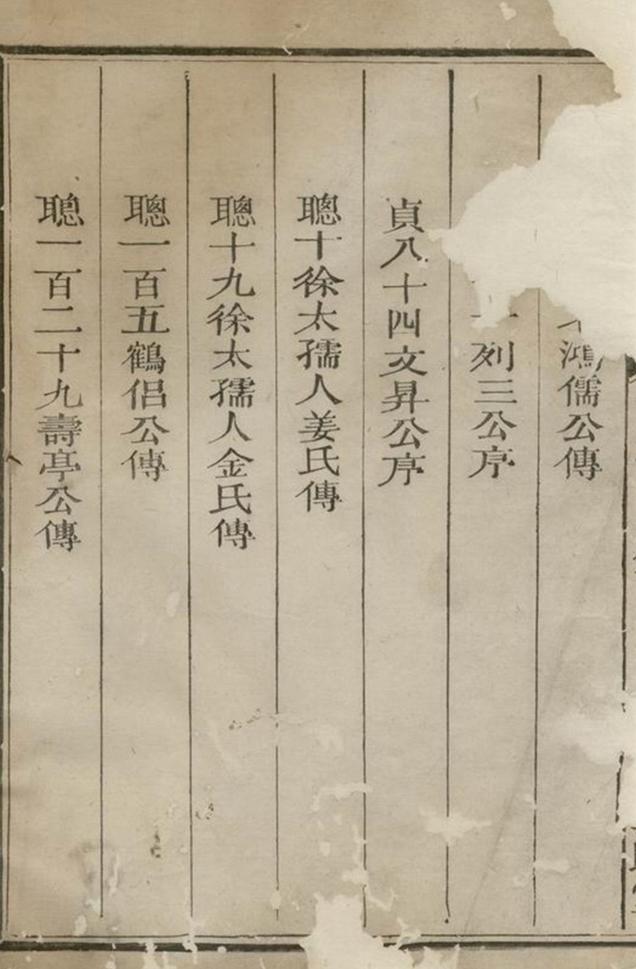 鴻儒公傳
列三公序
貞八十四文昇公序
聰十徐太孺人姜氏傳
聰十九徐太孺人金氏傳
聰一百五鶴侶公傳
聰一百二十九壽亭公傳